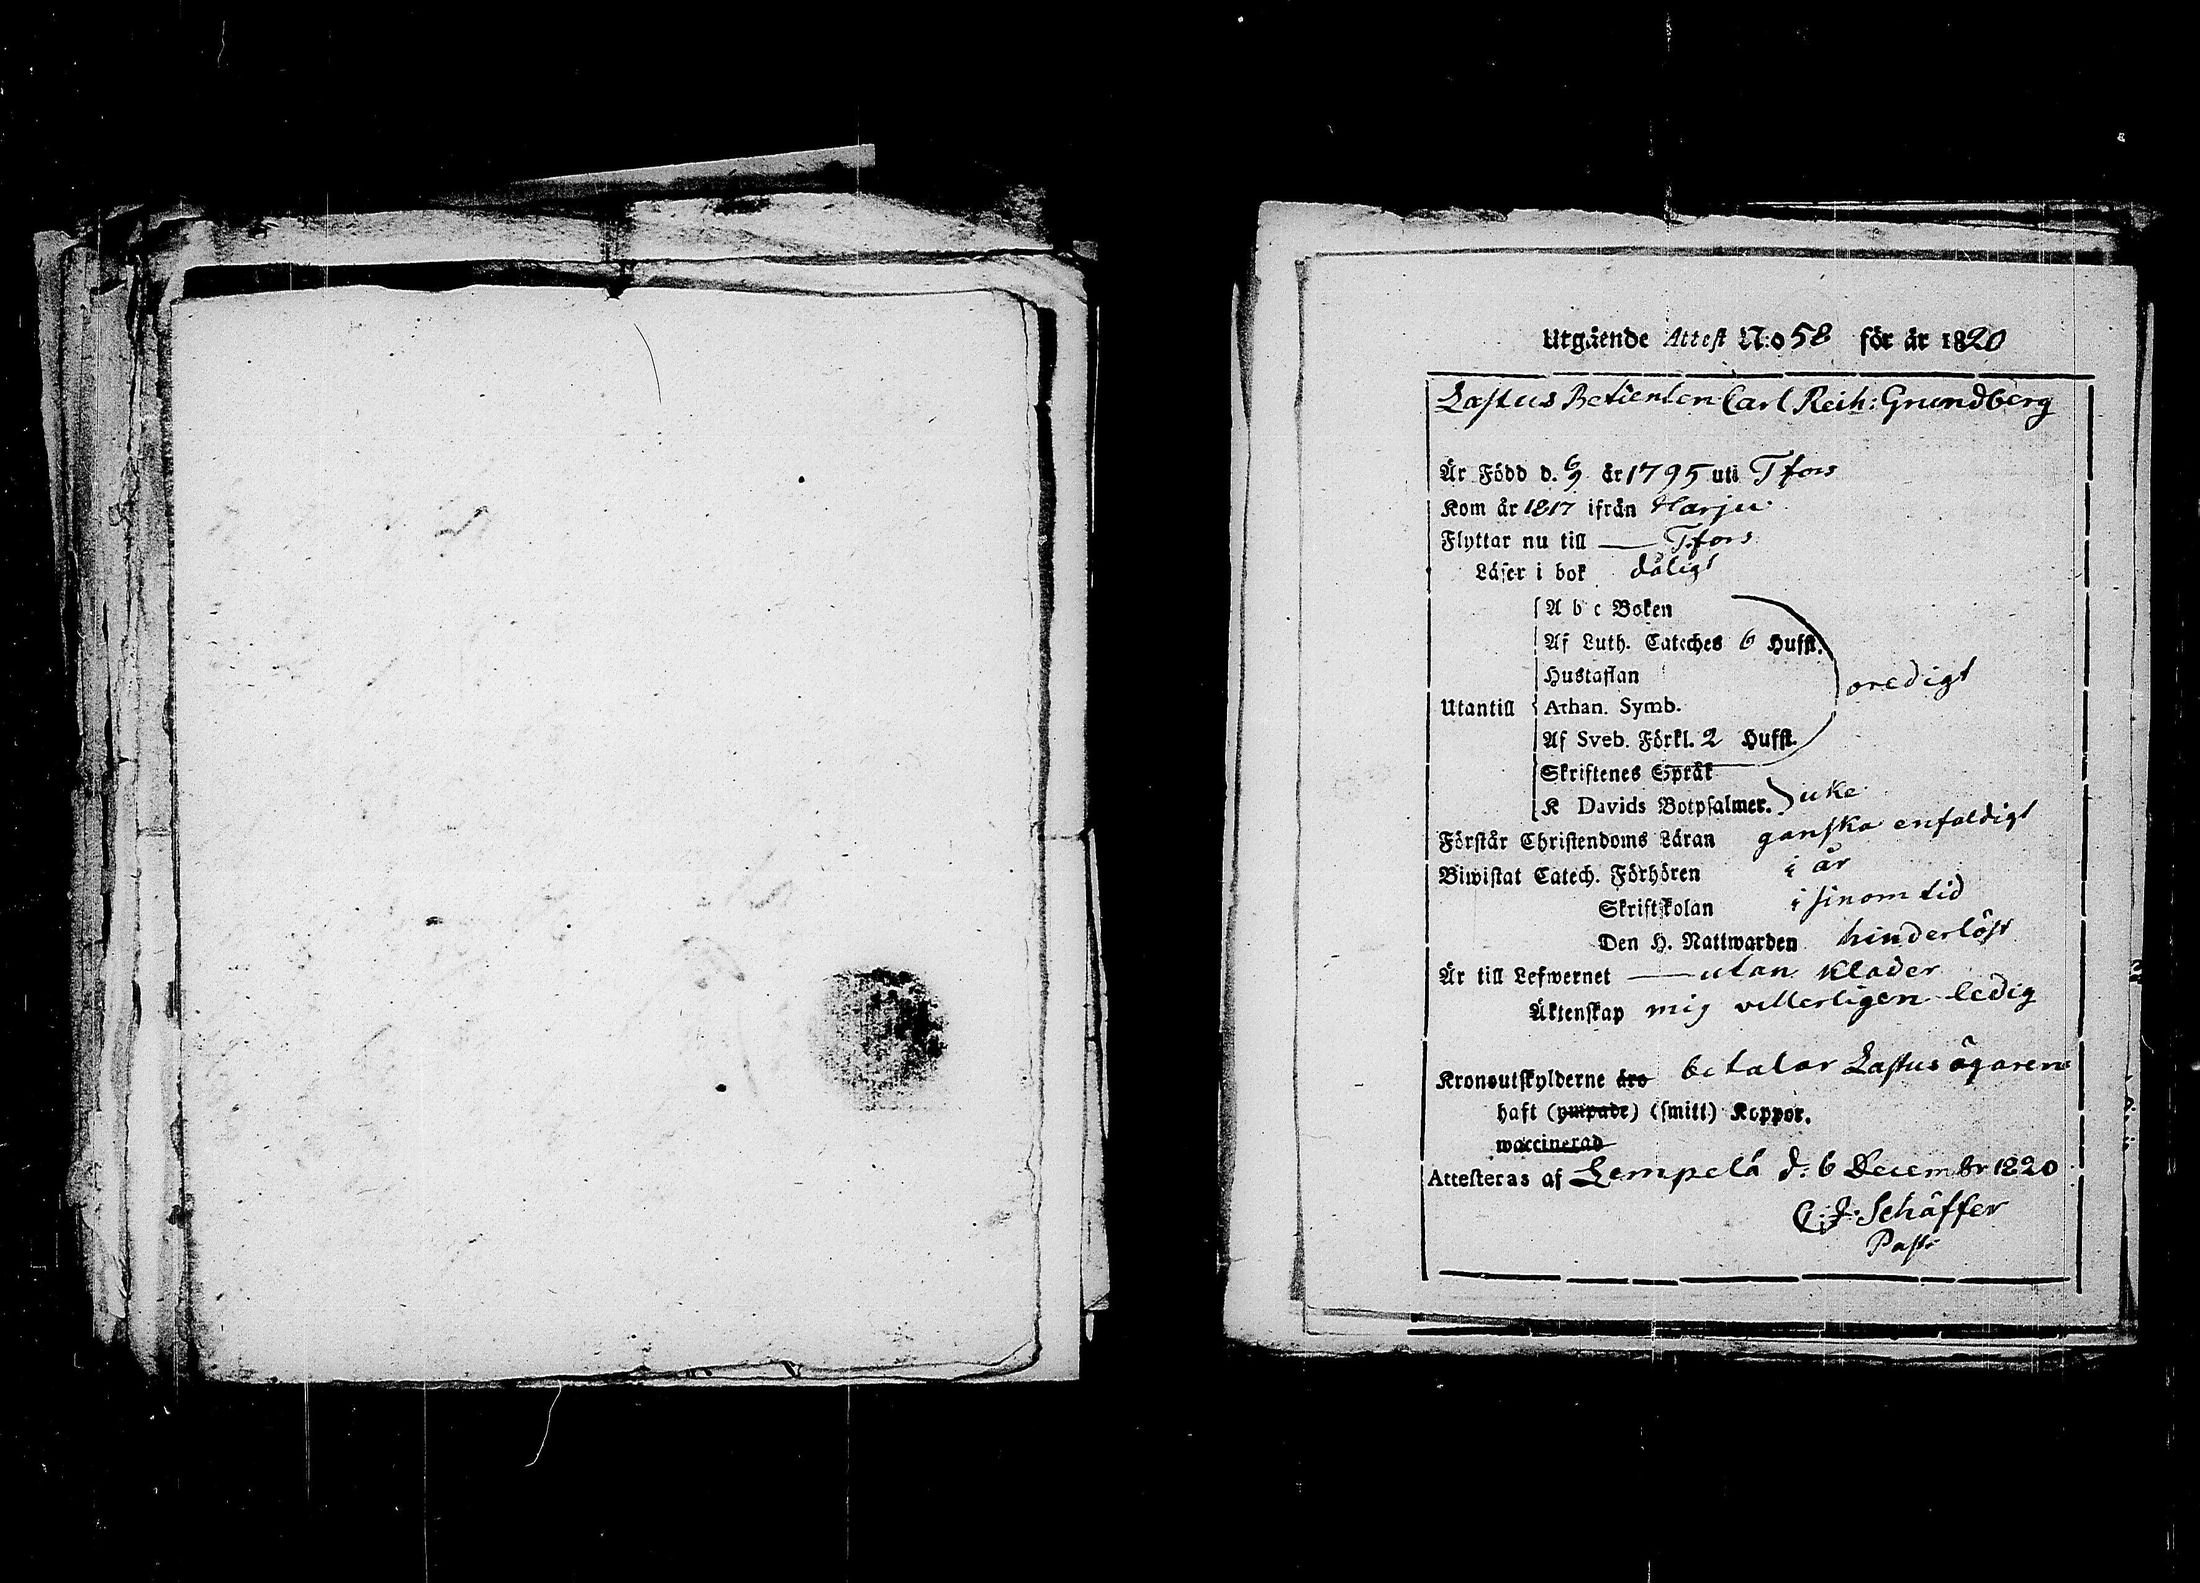 Utgående Attest N:o 58 för år 1820
Lastus Betienten Carl Reih: Grundberg
Är Född d. 6/9 år 1795 uti Tfors
Kom år 1817 ifrån Harju
Flyttar nu till — Tfors
Läser i bok dåligt
A b c Boken
Af Luth. Cateches 6 Hufst.
Hustaflan
oredigt
Utantill Athan. Symb.
Af Sveb. Förkl. 2 Hufst.
Skriftenes Språk
K Davids Botpsalmer. icke
Förstår Christendoms Läran ganska enfaldigt
Biwistat Catech. Förhören i år
Skriftskolan i sinom tid
Den H. Nattwarden hinderlöst
Är till Lefwernet — utan klader
Äktenskap mig vetterligen ledig
Kronoutskylderne äro betalar Lastus ägaren
haft (ympade) (smitt) Koppor.
waccinerad
Attesteras af Lempelä d. 6 December 1820
C. J. Schäffer
Past: